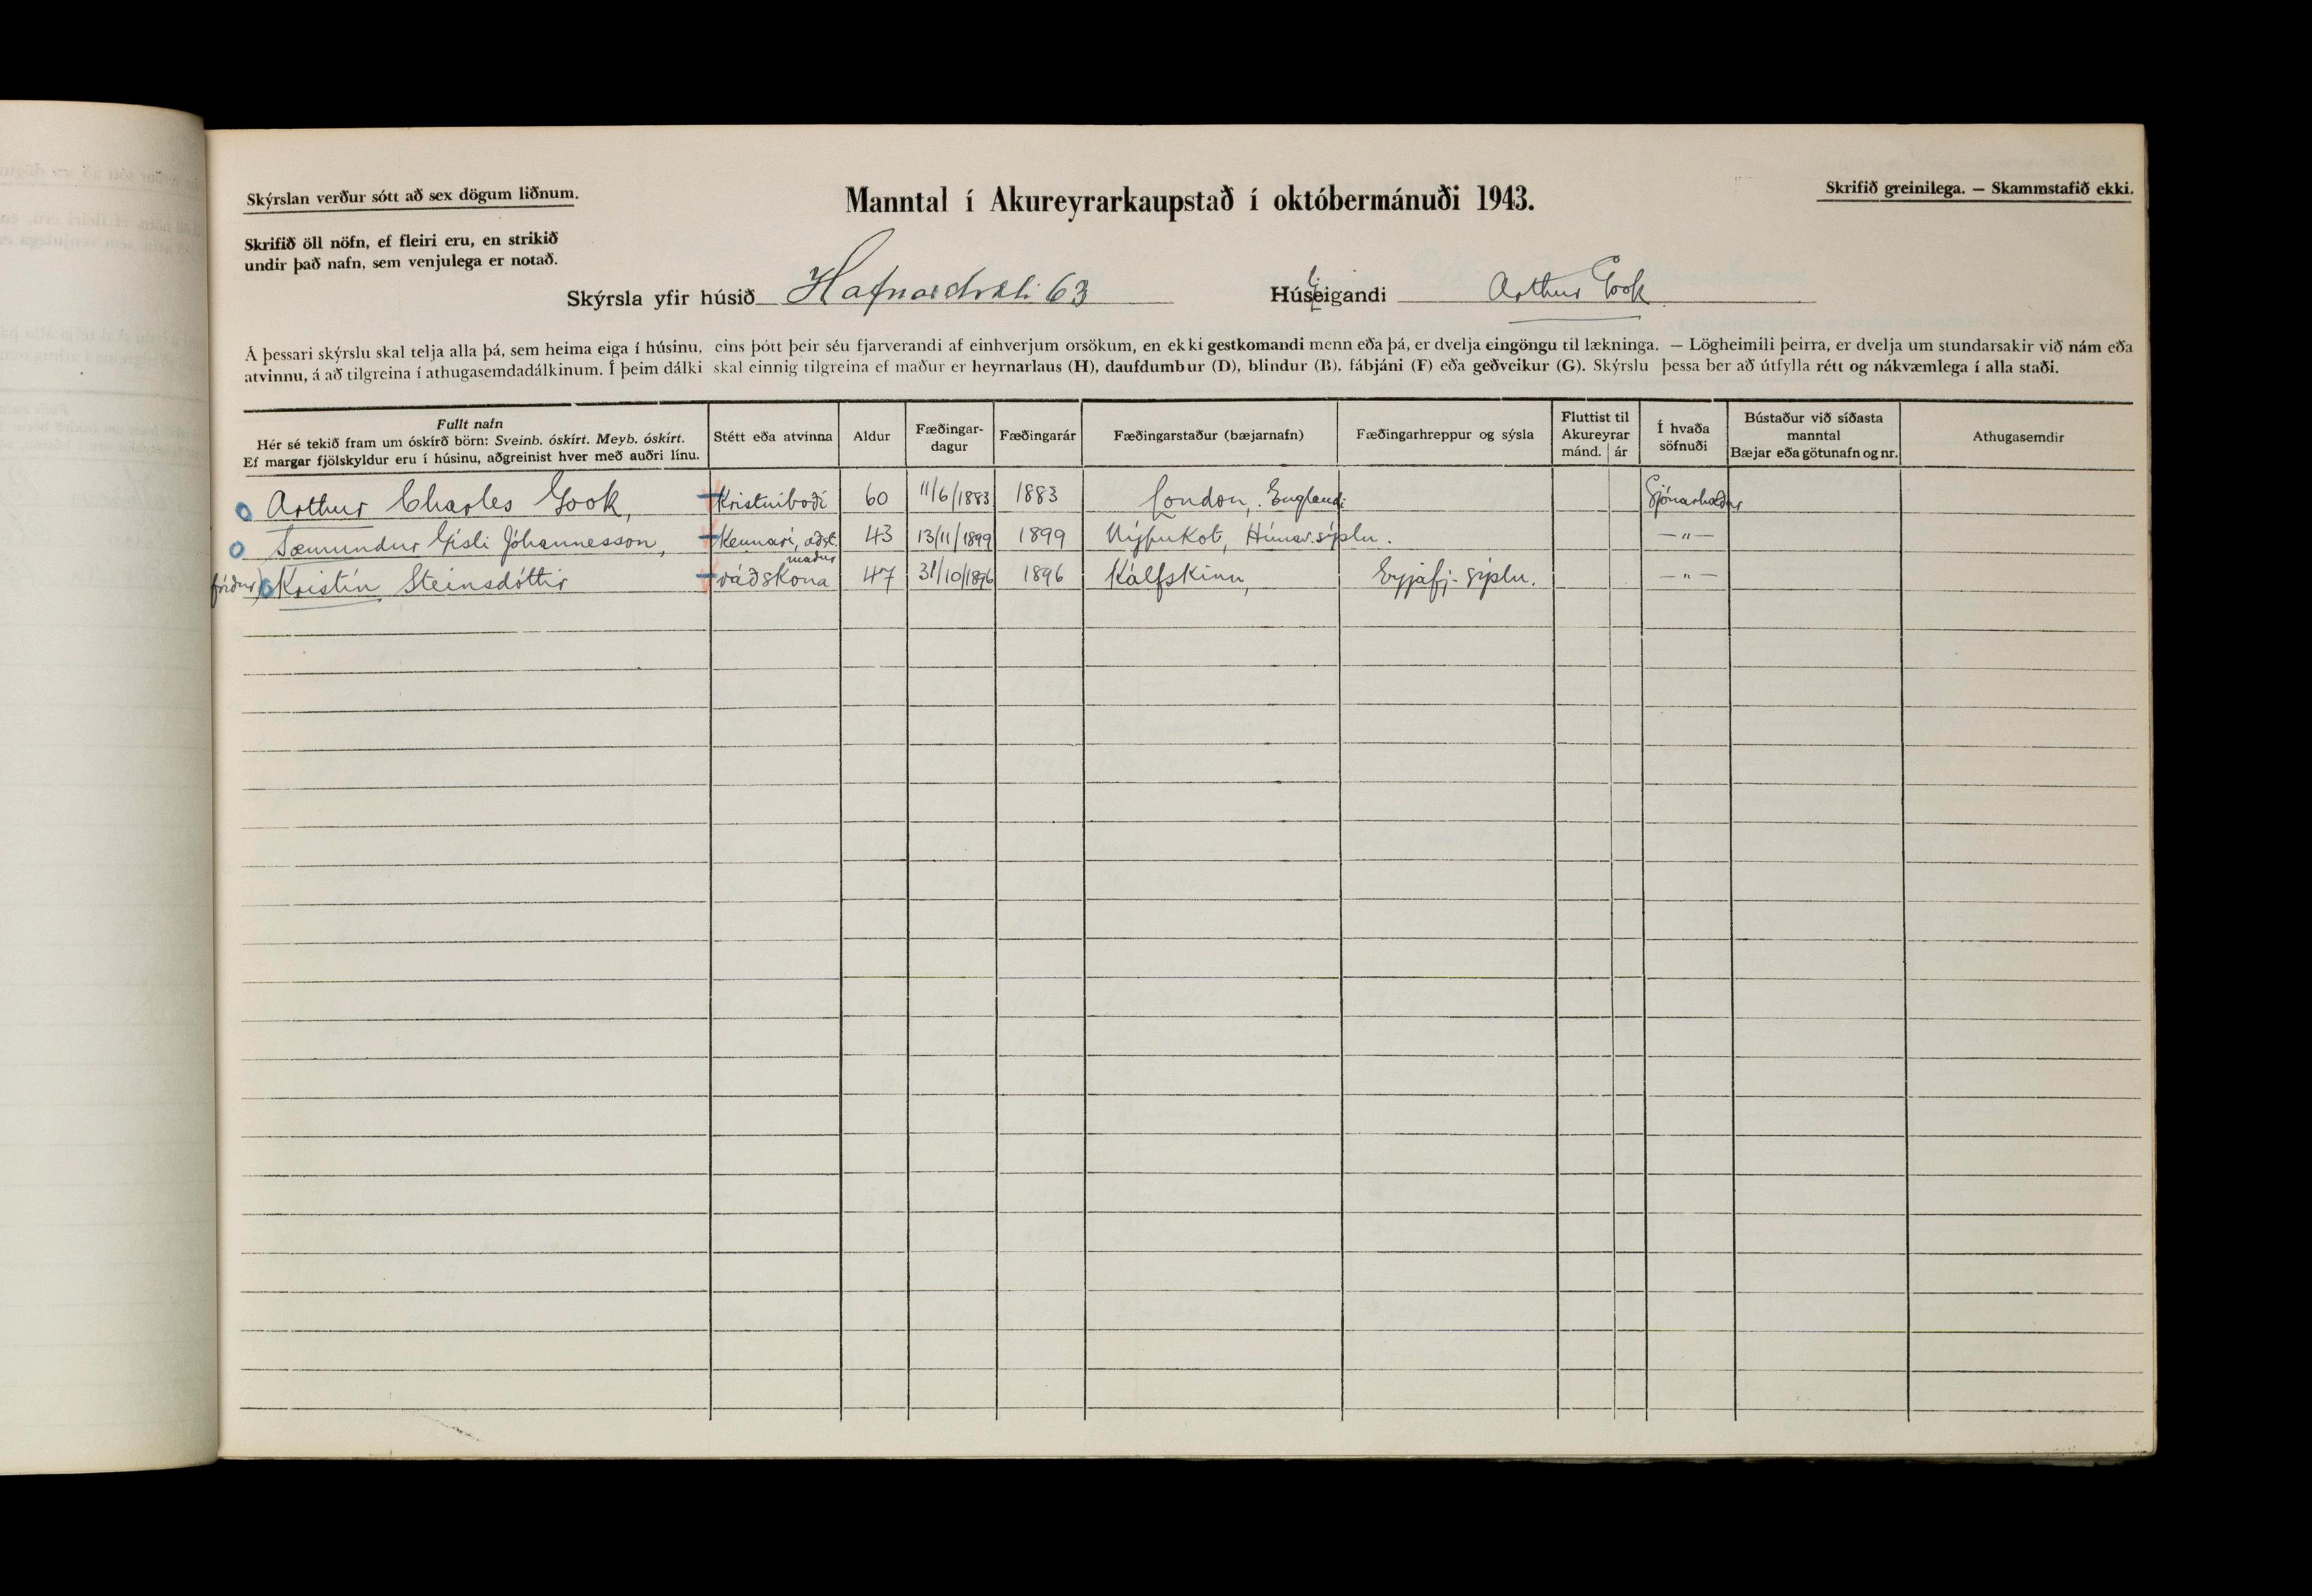 Skýrslan verður sótt að sex dögum liðnum.
Manntal í Akureyrarkaupstað í októbermánuði 1943.
Skrifið greinilega. — Skammstafið ekki.
Skrifið öll nöfn, ef fleiri eru, en strikið
undir það nafn, sem venjulega er notað.
Skýrsla yfir húsið Hafnarstræti 63 Húseigandi Arthur Gook
Á þessari skýrslu skal telja alla þá, sem heima eiga í húsinu, eins þótt þeir séu fjarverandi af einhverjum orsökum, en ekki gestkomandi menn eða þá, er dvelja eingöngu til lækninga. — Lögheimili þeirra, er dvelja um stundarsakir við nám eða
atvinnu, á að tilgreina í athugasemdadálkinum. Í þeim dálki skal einnig tilgreina ef maður er heyrnarlaus (H), daufdumbur (D), blindur (B), fábjáni (F) eða geðveikur (G). Skýrslu þessa ber að útfylla rétt og nákvæmlega í alla staði.
Fullt nafn
Hér sé tekið fram um óskírð börn: Sveinb. óskírt. Meyb. óskírt.
Ef margar fjölskyldur eru í húsinu, aðgreinist hver með auðri línu.
Stétt eða atvinna
Aldur
Fæðingar-
dagur
Fæðingarár
Fæðingarstaður (bæjarnafn)
Fæðingarhreppur og sýsla
Fluttist til
Akureyrar
mánd. ár
Í hvaða
söfnuði
Bústaður við síðasta
manntal
Bæjar eða götunafn og nr.
Athugasemdir
Arthur Charles Gook, Kristniboði 60 11/6/1883 1883 London, Englandi Sjónarhæðar
Sæmundur Gísli Jóhannesson, Kennari, aðst. maður 43 13/11/1899 1899 Nýpukot, Húnav.sýslu. —"—
Kristín Steinsdóttir ráðskona 47 31/10/1896 1896 Kálfskinn, Eyjafj. sýslu. —"—